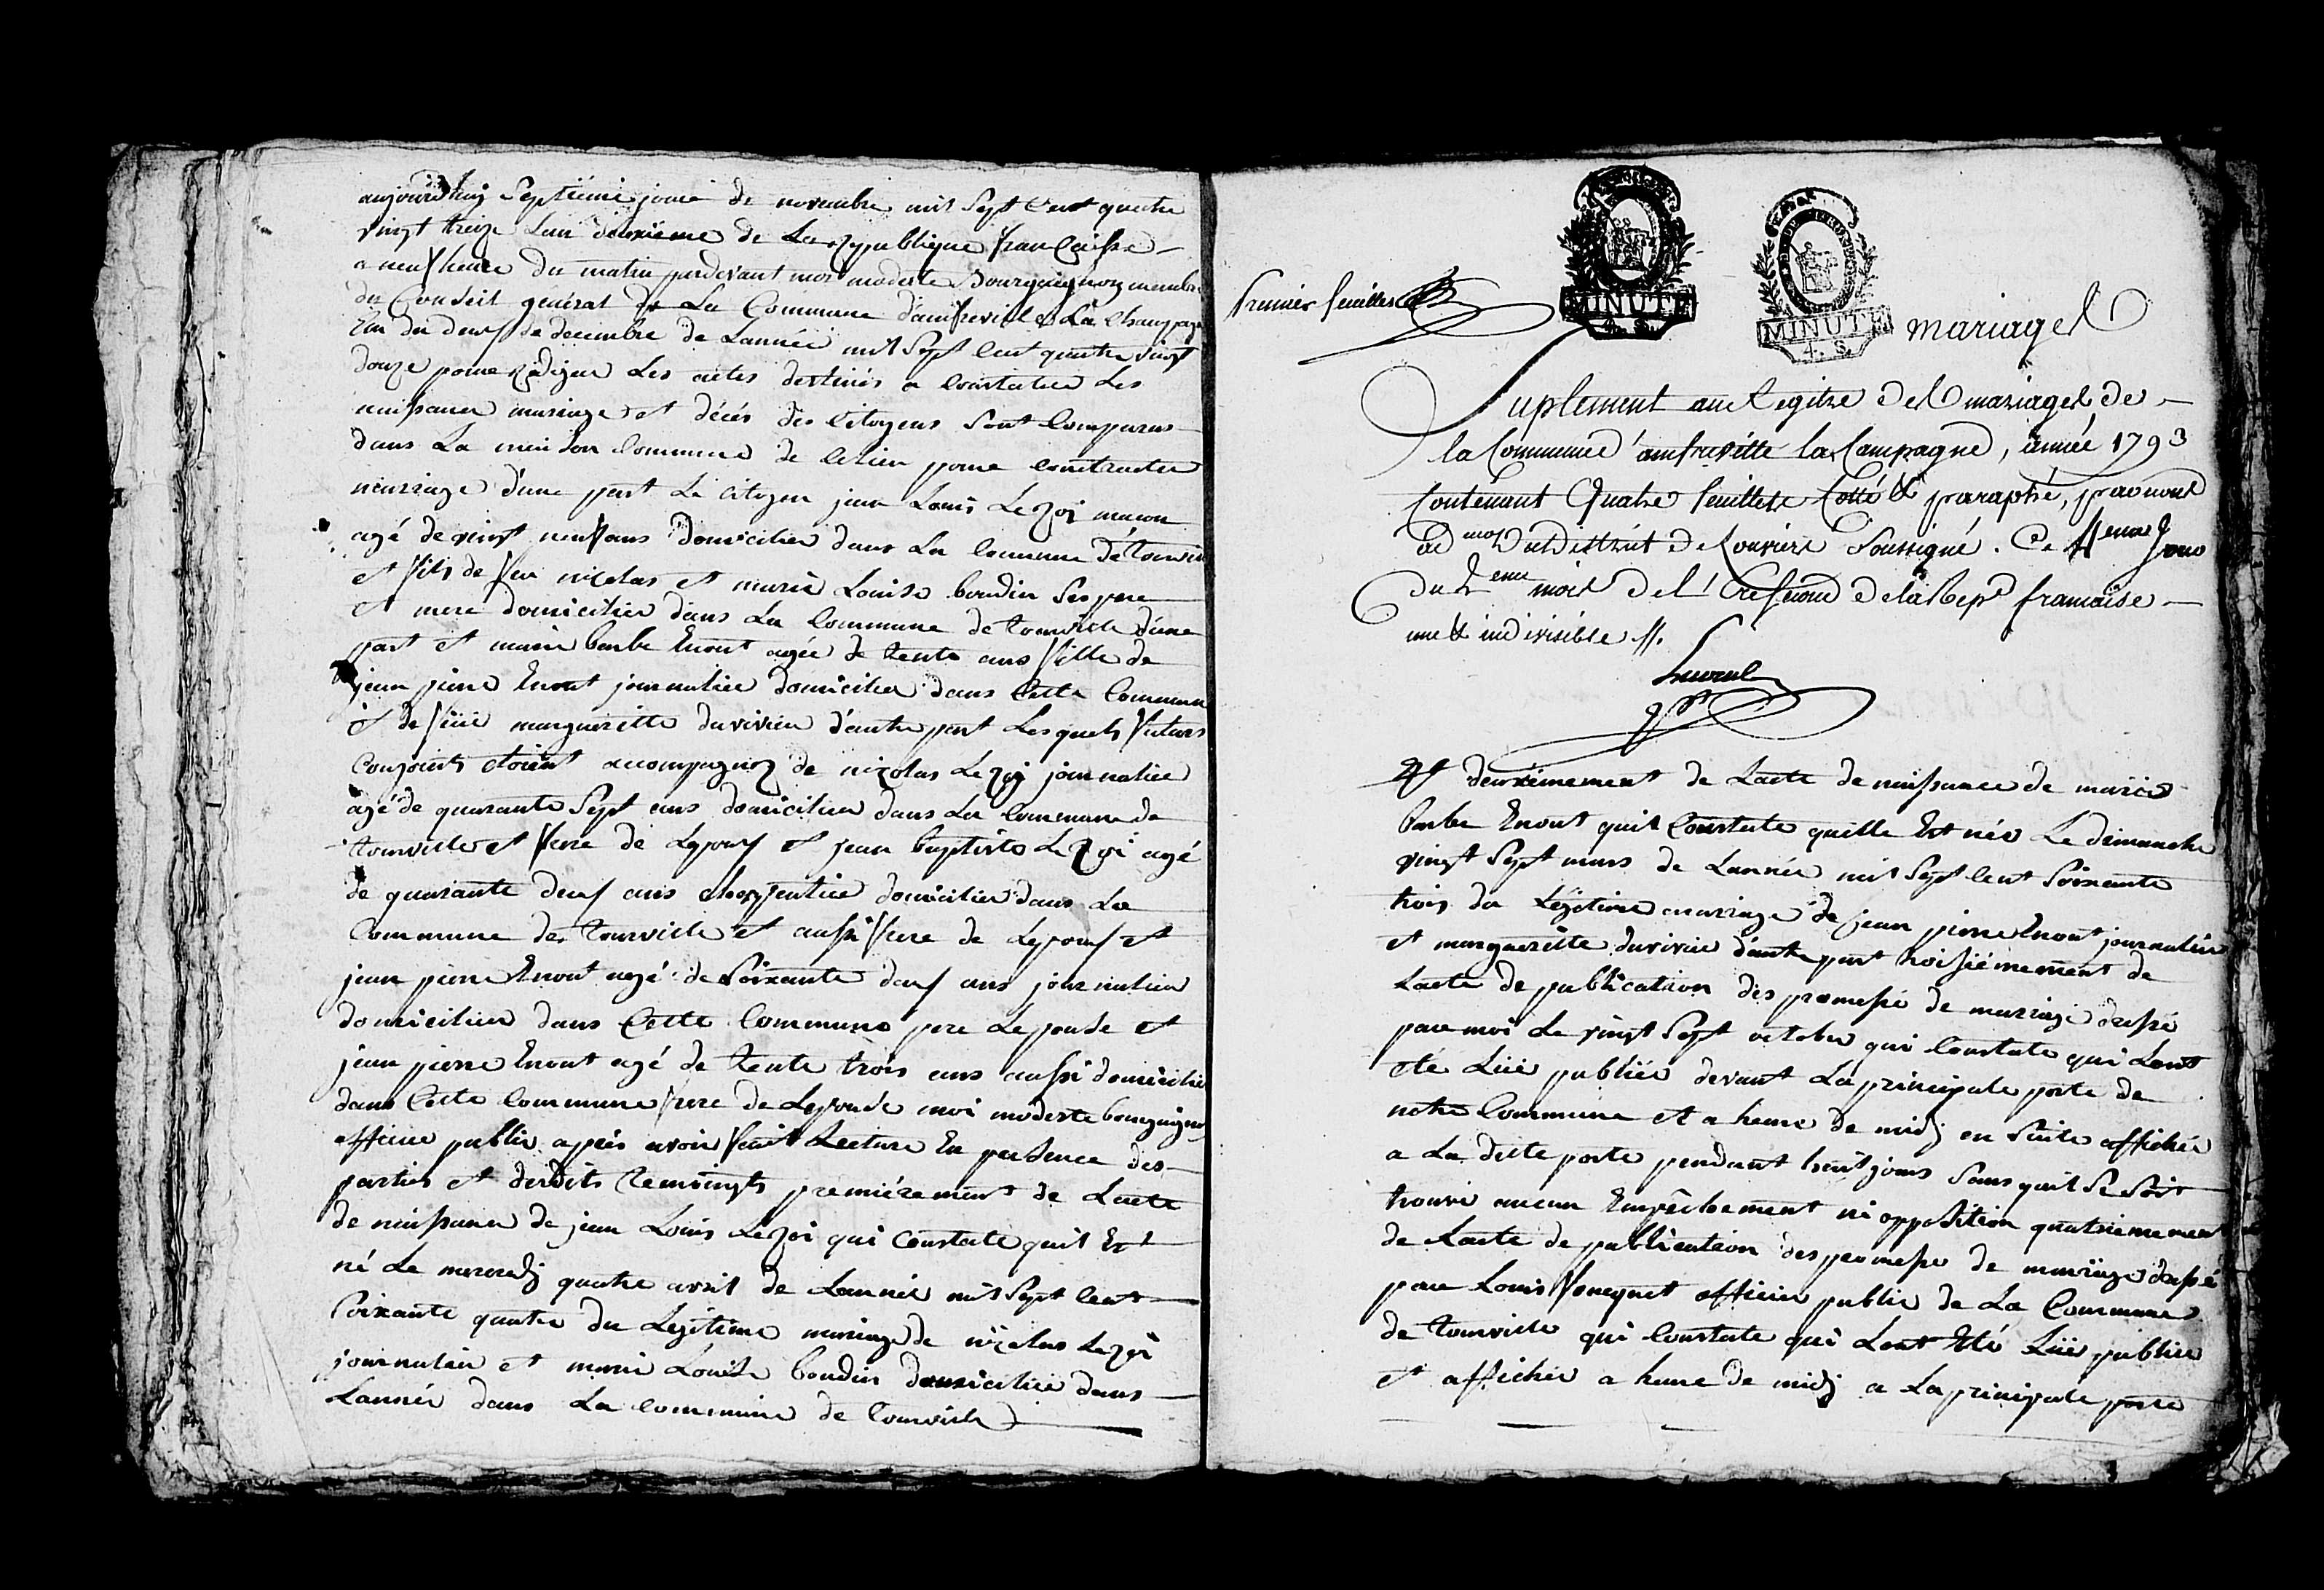 aujourdhuy Septiéme jour de novembre mil Sept Cent quatre
vingt treize Lan deuxieme de La republique francaisse
a neuf heure du matin pardevant moi modeste Bourguignon membre
du Conseil general de La Commune damfreville La Champagne
Elu du deuf de decembre de Lannée mil Sept Cent quatre vingt
douze pour rediger Les actes destinés a Constater Les
naissance mariage et décés des Citoyens Sont Comparus
dans La maison Commune de Celieu pour Contracter
mariage d'une part Le citoyen jean Louis Le roi macon
agé de vingt neuf ans domicilier dans La Commune de tourville
et fils de feu nicolas et marie Louise boudin Ses pere
et mere domicilier dans La Commune de tourville dune
part et marie barbe Enout agée de trente ans fille de
jean pierre Enout journalier domicilier dans Cette Commune
et de feüe margueritte duvivier d'autre part Lesquels futurs
Conjoints étoient accompagnez de nicolas Le roy journalier
agé de quarante Sept ans domicilier dans La Commune de
tourville et frere de Lepouf et jean baptiste Le roi agé
de quarante deuf ans charpentier domicilier dans La
Commune de tourville et aussi frere de Lepouf et
jean pierre Enout agé de Soixante deuf ans journalier
domicilier dans Cette Commune pere Lepouse et
jean pierre Enout agé de tente trois ans aussi domicilier
dans Cette Commune frere de Lepouse moi modeste bourguignon
officier public après avoir fait Lecture En presence des
parties et desdits temoingts premiérement de Lacte
de naissance de jean Louis Le roi qui Constate quil Est
né Le mercredy quatre avril de Lannée mil Sept Cent
Soixante quatre du Legitime mariage de nicolas Le roi
journalier et marie Louise boudin domicilier dans
Lannée dans La Commune de tourville
Premier feuillet
MINUTE
4. S.
MINUTE
4. S.
mariages
Suplement au Regitre des mariages de
la Commune d'amfreville la Campagne, année 1793
Contenant Quatre feuillets Cotté & paraphé, par nous
ad mor du district de Louviers Soussigné. Ce
du 2 eme mois de l' de la Rep.e francaise
une & indivisible //.
Et deuxiémement de Lacte de naissance de marie
barbe Enout quil Constate quelle Est née Le dimanche
vingt Sept mars de Lannée mil Sept Cent Soixante
trois du Légitime mariage de jean pierre Enout journalier
et margueritte duvivier d'autre part troisiémement de
Lacte de publication des promesse de mariage dressé
par moi Le vingt Sept octobre qui Constate qui Lont
eté Lüe publiée devant La principale porte de
notre Commune et a heure de midj en Suite affichée
a La ditte porte pendant huit jours Sans quil Se Soit
trouvé aucun Empêchement ni opposition quatriemement
de Lacte de publication des promesse de mariage dressé
par Louis fouquet officier public de La Commune
de tourville qui Constate qui Lont Eté Lüe publiée
et affichée a heure de midj a La principale porte